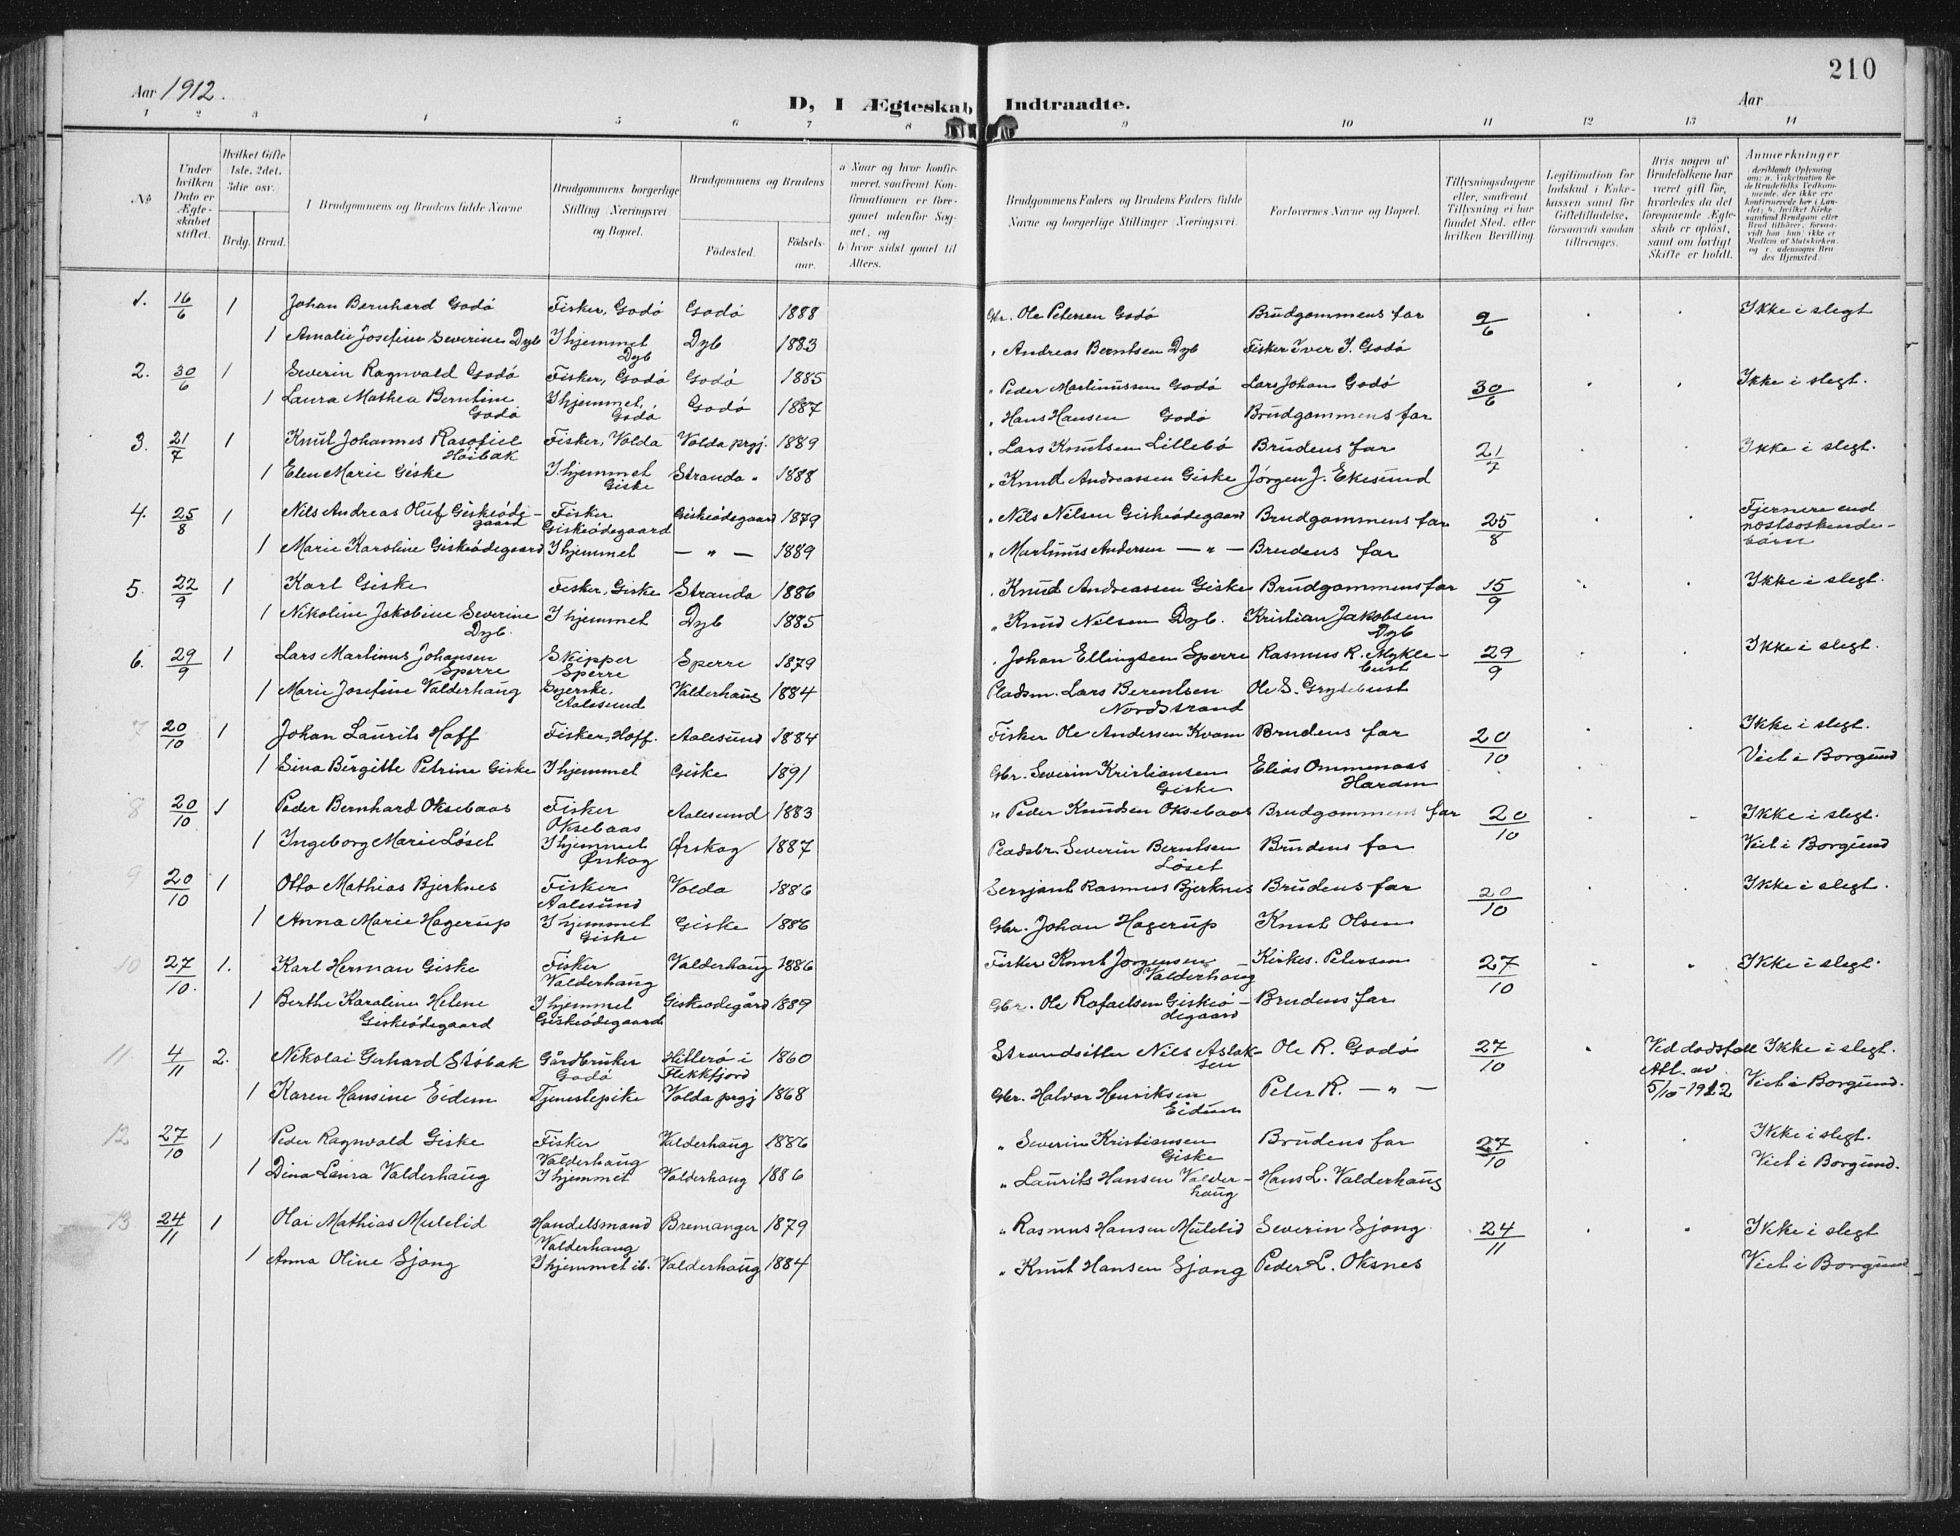 210
Aar 1912.
D, I Ægteskab Indtraadte.
Aar
1 2 3 4 5 6 7 8 9 10 11 12 13 14
№
Under hvilken Dato er Ægteskabet stiftet.
Hvilket Gifte 1ste, 2det, 3die osv.
Brdg. Brud.
I Brudgommens og Brudens fulde Navne
Brudgommens borgerlige Stilling Næringsvei og Bopæl.
Brudgommens og Brudens
Födested. Födselsaar.
a Naar og hvor konfirmeret, saafremt Konfirmationen er foregaaet udenfor Sognet, og
b hvor sidst gaaet til Alters.
Brudgommens Faders og Brudens Faders fulde Navne og borgerlige Stillinger Næringsvei.
Forlovernes Navne og Bopæl.
Tillysningsdagene eller, saafremt Tillysning ei har fundet Sted, efter hvilken Bevilling.
Legitimation for Indskud i Enkekassen samt for Giftetilladelse, forsaavidt saadan tiltrænges.
Hvis nogen af Brudefolkene har været gift för, hvorledes da det foregaaende Ægteskab er oplöst, samt om lovligt Skifte er holdt.
Anmærkninger
1. 16/6 1 Johan Bernhard Godö Fisker, Godö Godö 1888 Gbr. Ole Petersen Godö Brudgommens far 9/6 Ikke i slegt
1 Amalie Josefine Severine Dyb I hjemmet Dyb Dyb 1883 " Andreas Berntsen Dyb Fisker Iver J. Godö
2. 30/6 1 Severin Ragnvald Godö Fisker, Godö Godö 1885 " Peder Martinussen Godö Lars Johan Godö 30/6 Ikke i slegt.
1 Laura Mathea Berntine Godö I hjemmet, Godö Godö 1887 " Hans Hansen Godö Brudgommens far
3. 21/7 1 Knut Johannes Rasofiel Höibak Fisker, Volda Volda prgj. 1889 " Lars Knutsen Lillebö Brudens far 21/7 Ikke i slegt.
1 Elen Marie Giske I hjemmet Giske Stranda " 1888 " Knud Andreassen Giske Jörgen J. Eksund
4. 25/8 1 Nils Andreas Oluf Giskeödegaard Fisker Giskeödegaard Giskeödegaard 1879 " Nils Nilsen Giskeödegaard Brudgommens far 25/8 Fjernere end nöstsöskendebörn
1 Marie Karoline Giskeödegaard I hjemmet — " — 1889 " Martinus Andersen — " — Brudens far
5. 22/9 1 Karl Giske Fisker, Giske Stranda 1886 " Knud Andreassen Giske Brudgommens far 15/9 Ikke i slegt.
1 Nikoline Jakobine Severine Dyb. I hjemmet Dyb 1885 " Knud Nilsen Dyb. Kristian Jakobsen Dyb
6. 29/9 1 Lars Martinus Johansen Sperre Skipper Sperre Sperre 1879 " Johan Ellingsen Sperre Rasmus R. Myklebust 29/9 Ikke i slegt.
1 Marie Josefine Valderhaug Syerske, Aalesund Valderhaug 1884 Pladsm. Lars Berentsen Nordstrand Ole S. Grytebust
7 20/10 1 Johan Laurits Hoff Fisker, Hoff. Aalesund 1884 Fisker Ole Andersen Kvam Brudens far 20/10 Ikke i slegt.
1 Sina Bergitte Petrine Giske I hjemmet Giske 1891 Gbr. Severin Kristiansen Giske Elias Ommenaas Haram Viet i Borgund
8 20/10 1 Peder Bernhard Oksebaas Fisker Oksebaas Aalesund 1883 " Peder Knudsen Oksebaas Brudgommens far 20/10 Ikke i slegt.
1 Ingeborg Marie Löset I hjemmet Ørskog Ørskog 1887 Pladsbr. Severin Berntsen Löset Brudens far Viet i Borgund
9 20/10 1 Otto Mathias Bjerknes Fisker Aalesund Volda 1886 Sersjant Rasmus Bjerknes Brudens far 20/10 Ikke i slegt.
1 Anna Marie Hagerup I hjemmet Giske Giske 1886 Gbr. Johan Hagerup Knut Olsen
10 27/10. 1. Karl Herman Giske Fisker Valderhaug Valderhaug 1886 Fisker Knut Jorgensen Valderhaug Kirkes. Petersen 27/10 Ikke i slegt.
1 Berthe Karoline Helene Giskeödegaard I hjemmet Giskeödegaard Giskeodegård 1889 Gbr. Ole Rafaelsen Giskeödegaard Brudens far
11. 4/11 2. Nikolai Gerhard Stöbak Gårdbruker Godö Hitterö i Flekkfjord 1860 Strandsitter Nils Aslaksen Ole R. Godö 27/10 Ved dödsfall Att. av 5/10-1912 Ikke i slegt.
1 Karen Hansine Eidem Tjenestepike Volda prgj 1868 Gbr. Halvor Henriksen Eidem Peter R. — " — Viet i Borgund.
12 27/10 1 Peder Ragnvald Giske Fisker Valderhaug Valderhaug 1886 " Severin Kristiansen Giske Brudens far 27/10 Ikke i slegt.
1 Dina Laura Valderhaug I hjemmet Valderhaug 1886 " Laurits Hansen Valderhaug Hans L. Valderhaug Viet i Borgund.
13 24/11 1 Olai Mathias Mulelid Handelsmand Valderhaug Bremanger 1879 " Rasmus Hansen Mulelid Severin Sjong 24/11 Ikke i slegt
1 Anna Oline Sjong I hjemmet ib. Valderhaug 1884 " Knut Hansen Sjong Peder L. Oksnes Viet i Borgund